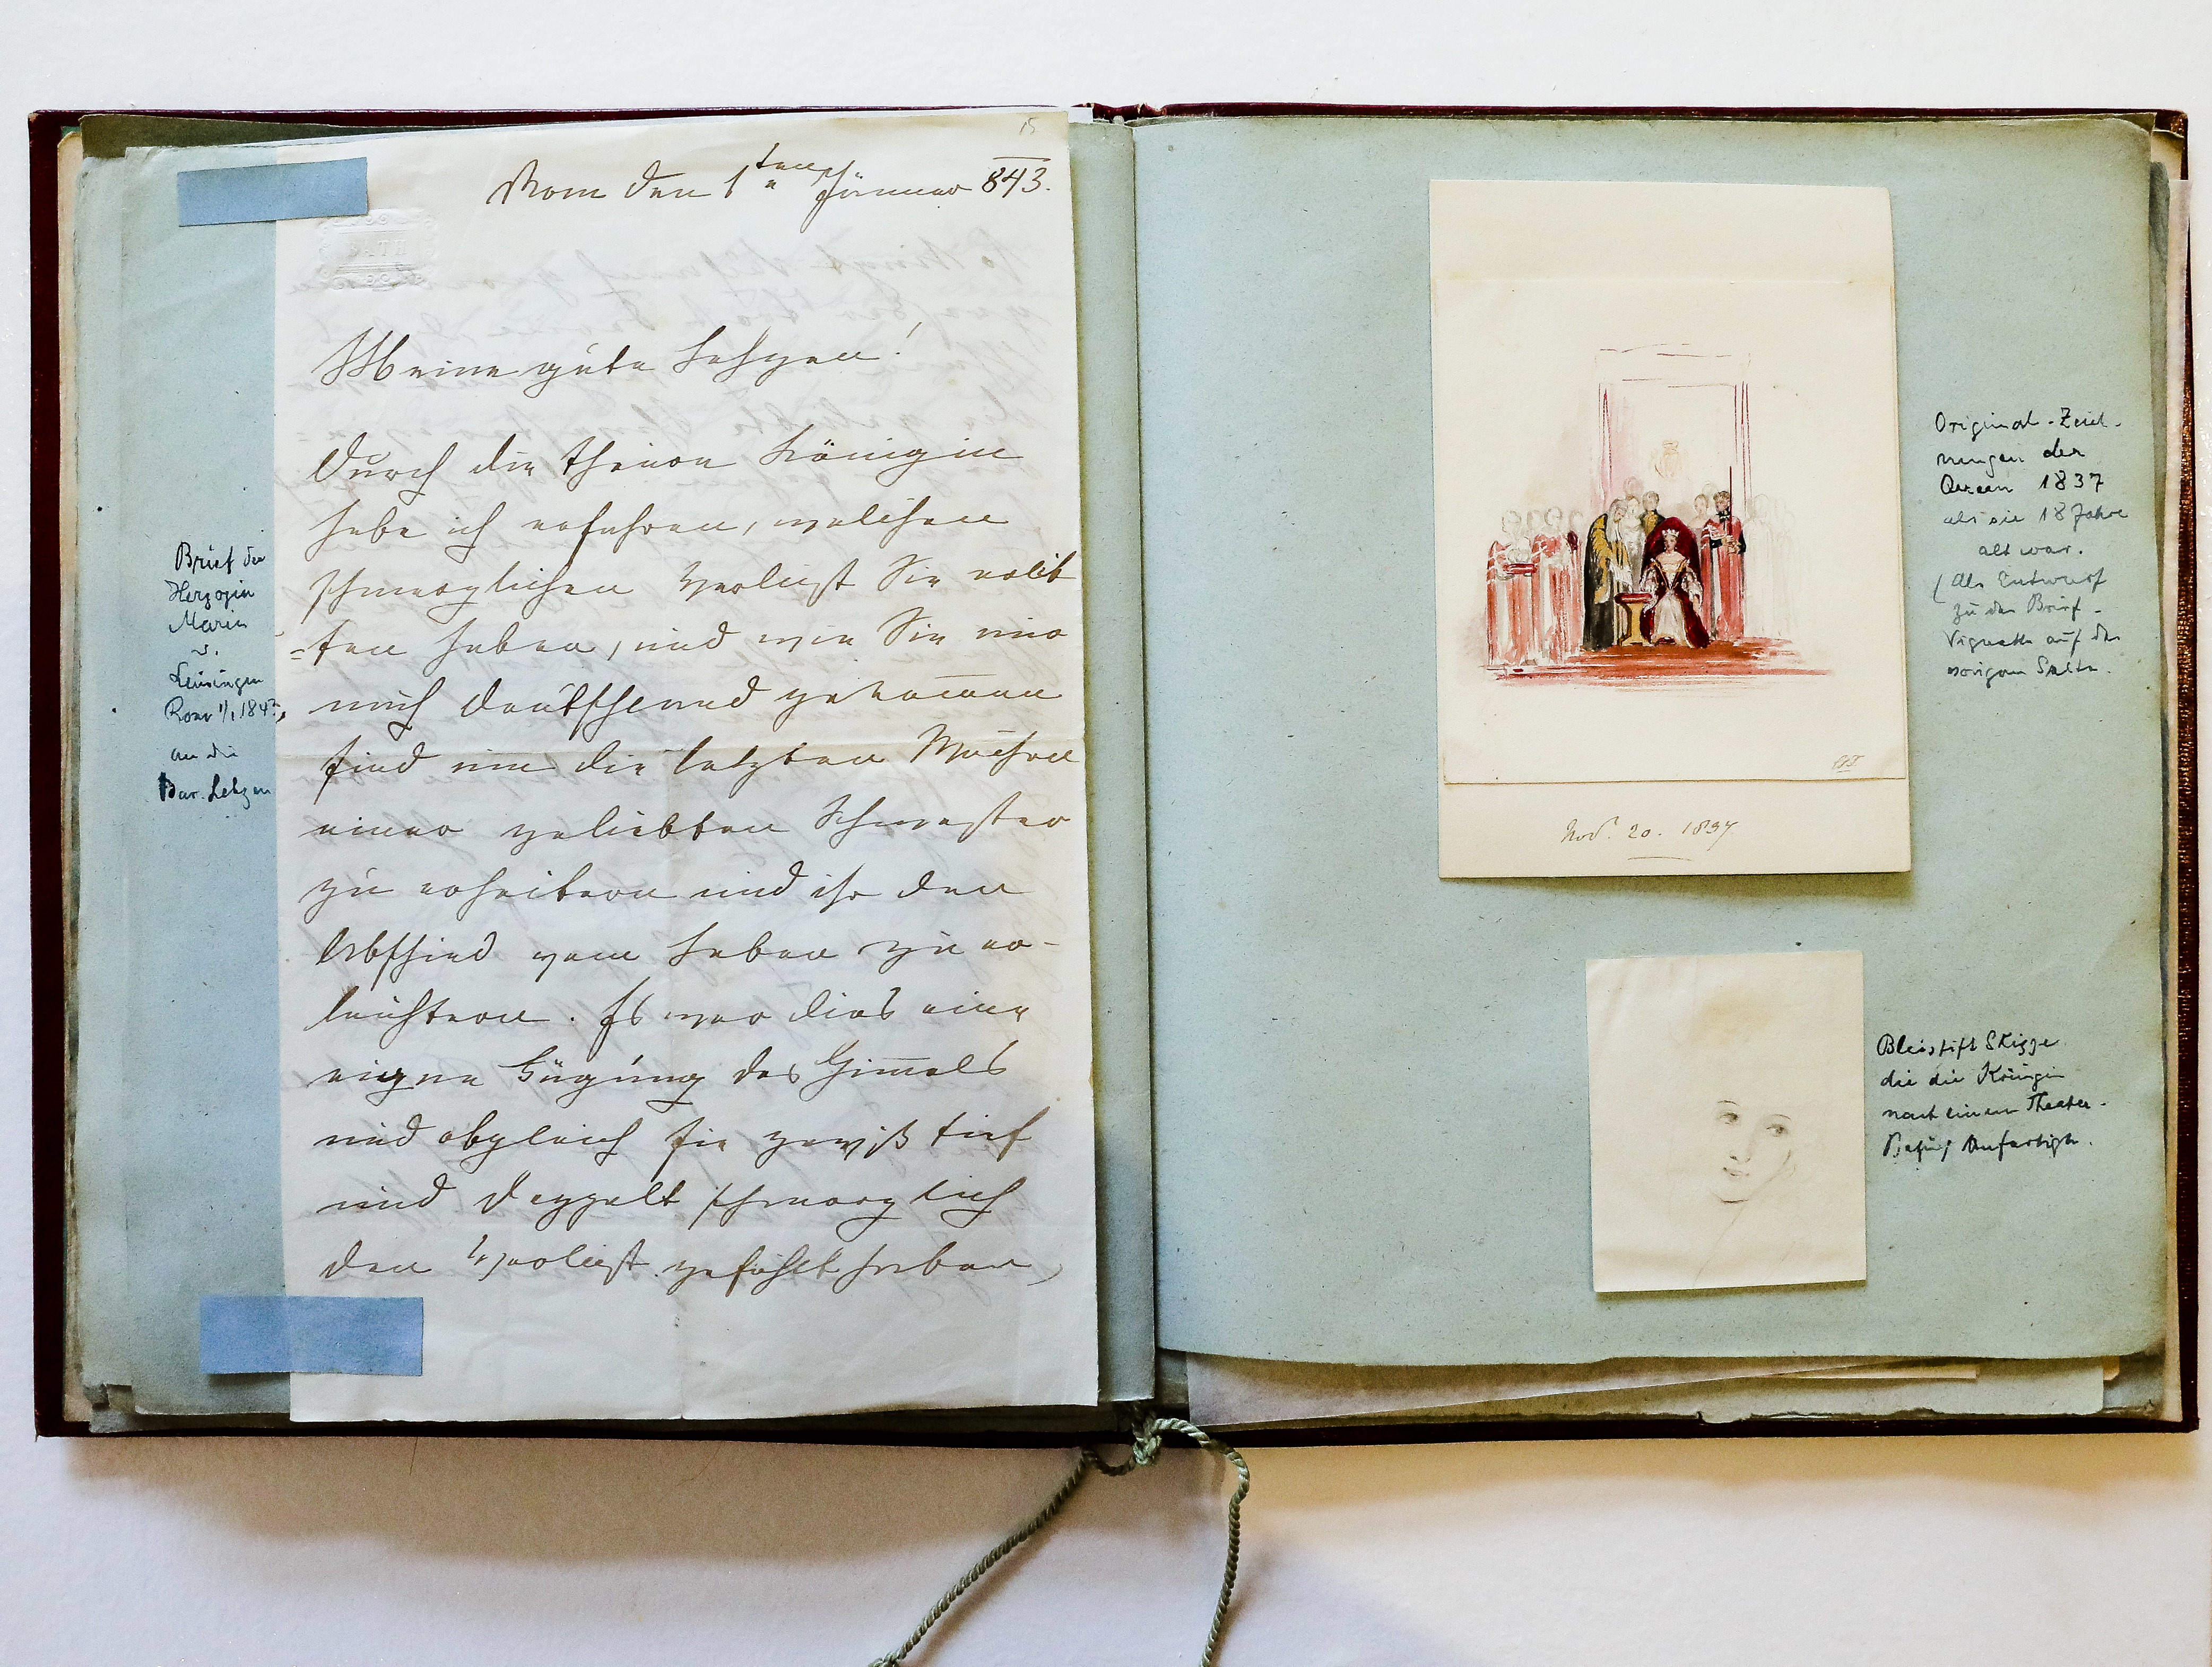 15
Rom den 1ten Jänner 843.
BATH
Meine gute Lehzen!
Durch die theure Königin
habe ich erfahren, welchen
schmerzlichen Verlust Sie erlit
=ten haben, und wie Sie nur
nach Deutschland gekommen
sind um die letzten Wochen
einer geliebten Schwester
zu erheitern und ihr den
Abschied vom Leben zu er-
leichtern. Es war dies eine
eigne Fügung des Himels
und obgleich Sie gewiß tief
und doppelt schmerzlich
den Verlust gefühlt haben,
Brief der
Herzogin
Marie
v.
Leiningen
Rom 1/1 1843,
an die
Bar. Lehzen
Original-Zeich-
nungen der
Queen 1837
als sie 18 Jahre
alt war.
(Als Entwurf
zu der Brief-
Vignette auf der
vorigen Seite.
Nov. 20. 1837
Bleistift Skizze
die die Königin
nach einem Theater-
Besuch anfertigte.